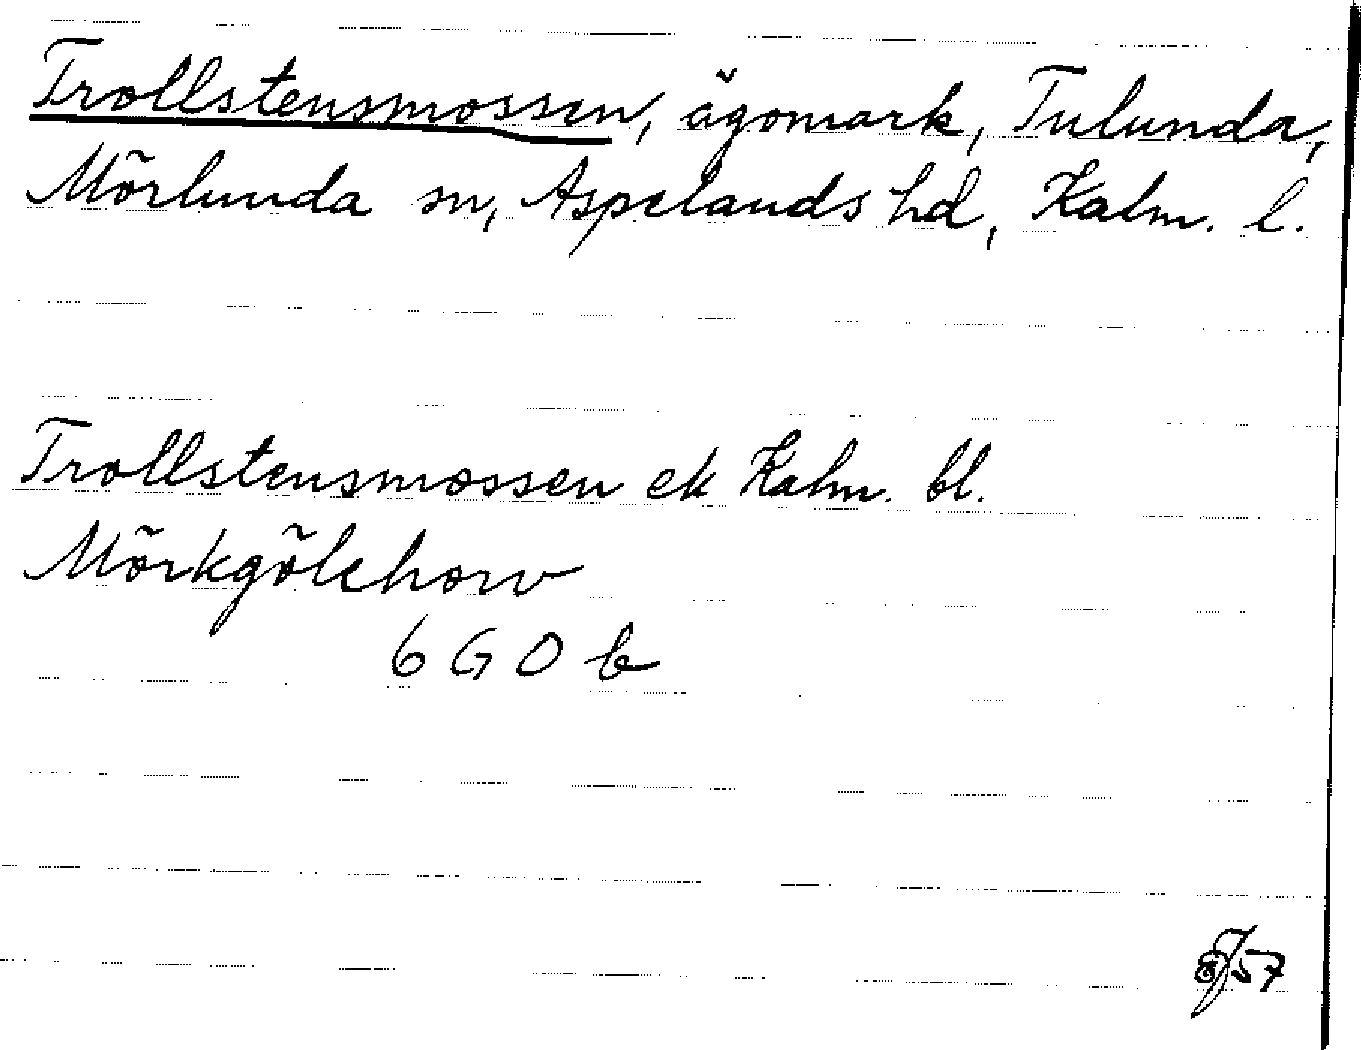 Trollstensmossen, ägomark, Tulunda,
Mörlunda sn, Aspelands hd, Kalm. l.
Trollstensmossen ek Kalm. bl.
Mörkgölehorv
6 G 0 b
57